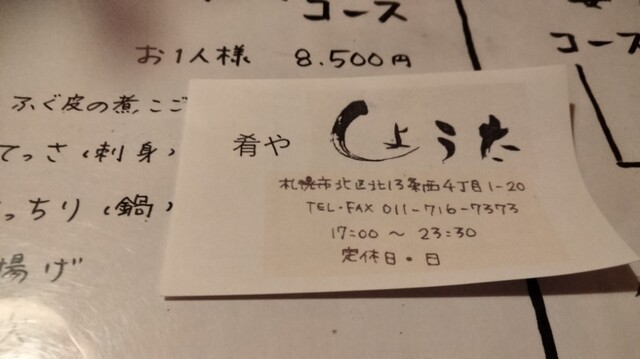 コース
お1人様 8.500円
ふぐ皮の煮こご
てっさ(刺身)
っちり(鍋)
揚げ
コース
肴や しょうた
札幌市北区北13条西4丁目1-20
TEL・FAX 011-716-7373
17:00 〜 23:30
定休日・日